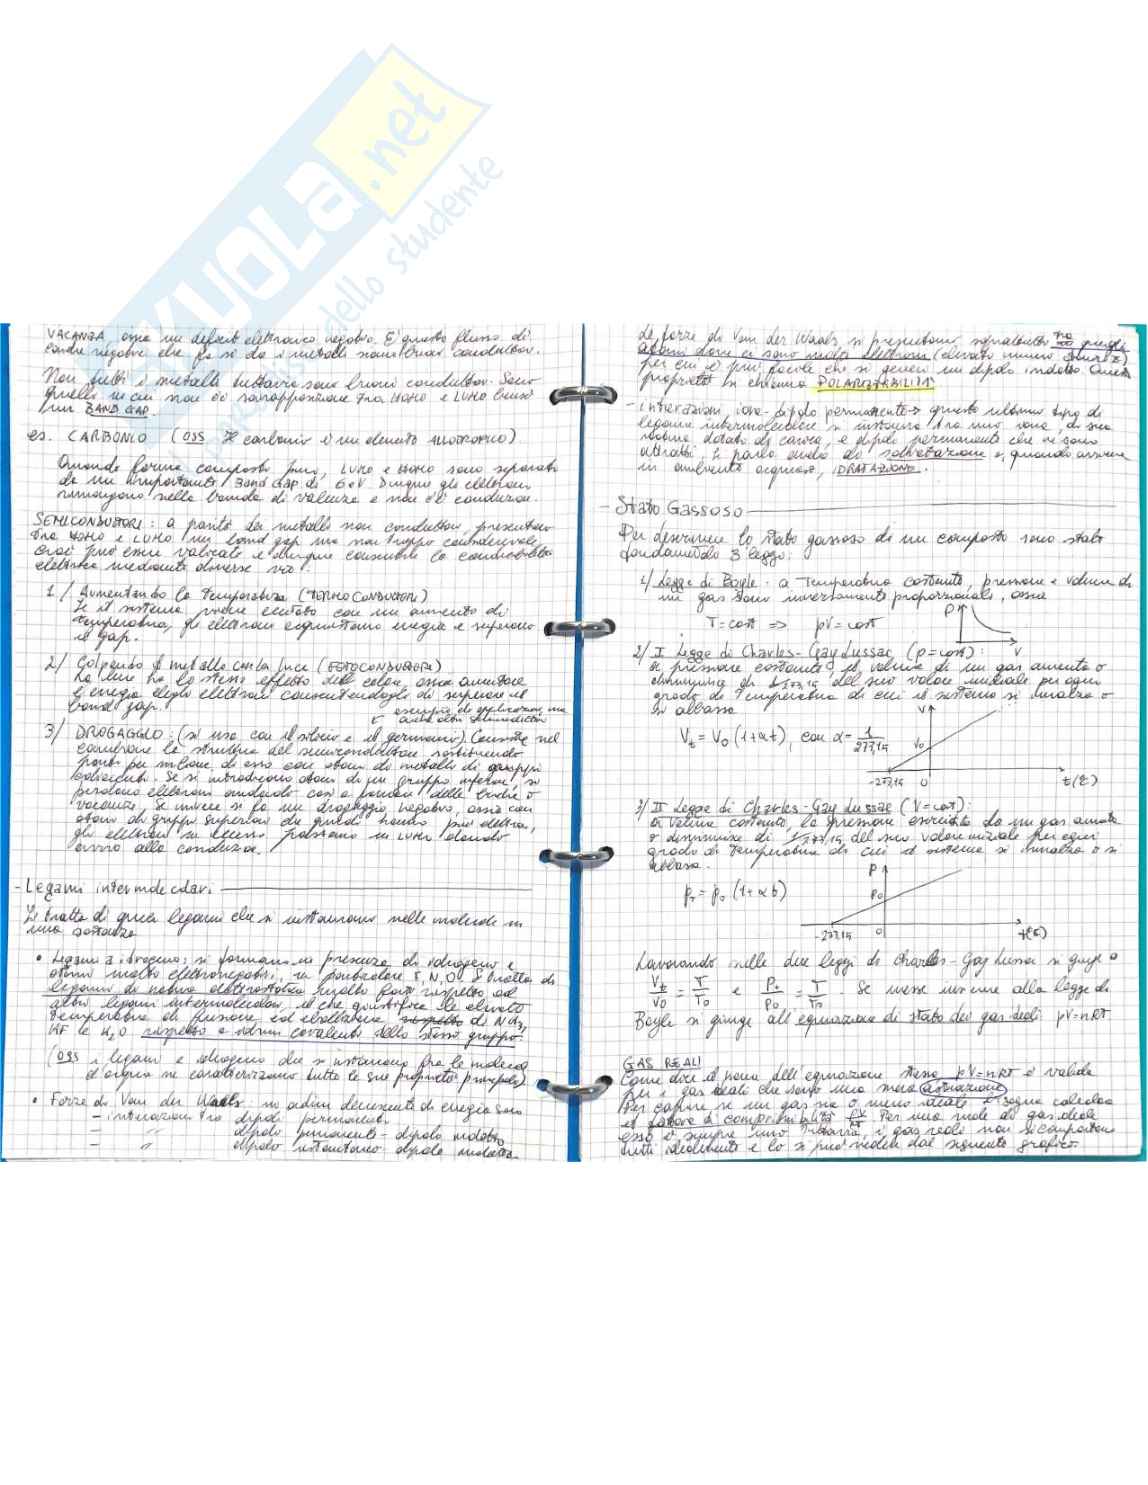 SKUOLA.net
dello studente
VACANZA, ossia un deficit elettronico negativo. È questo flusso di
cariche negative che fa sì che i metalli siano buoni conduttori.
Non tutti i metalli tuttavia sono buoni conduttori. Sono
quelli in cui non c'è sovrapposizione tra HOMO e LUMO bensì
un BAND GAP.
es. CARBONIO (OSS il carbonio è un elemento ALLOTROPICO).
Quando forma composto puro, LUMO e HOMO sono separati
da un importante BAND GAP di 6 eV. Dunque gli elettroni
rimangono nella banda di valenza e non c'è conduzione.
SEMICONDUTTORI: a parità dei metalli non conduttori, presentano
tra HOMO e LUMO un band gap ma non troppo considerevole,
così può essere valicato e dunque consentire la conducibilità
elettrica mediante diverse vie:
1/ Aumentando la temperatura (TERMOCONDUTTORI)
Se il sistema viene eccitato con un aumento di
temperatura, gli elettroni acquistano energia e superano
il gap.
2/ Colpendo il metallo con la luce (FOTOCONDUTTORI)
La luce ha lo stesso effetto del calore, ossia aumentare
l'energia degli elettroni consentendogli di superare il
band gap.
esempio di applicazione, ma
anche altri semiconduttori
3/ DROGAGGIO: (si usa con il silicio e il germanio). Consiste nel
corrompere la struttura del semiconduttore sostituendo
parti per milione di esso con atomi di metalli di gruppi
adiacenti. Se si introducono atomi di un gruppo inferiore, si
perdono elettroni andando così a formare delle buche o
vacanze. Se invece si fa un drogaggio negativo, ossia con
atomi di gruppi superiori che quindi hanno più elettroni,
gli elettroni in eccesso passano in LUMO dando
avvio alla conduzione.
- Legami intermolecolari
Si tratta di quei legami che si instaurano nelle molecole in
una sostanza
• Legami a idrogeno: si formano in presenza di idrogeno e
atomi molto elettronegativi, in particolare F, N, O. Si tratta di
legami di natura elettrostatica molto forti rispetto ad
altri legami intermolecolari, il che giustifica le elevate
temperature di fusione ed ebollizione rispetto di NH3,
HF e H2O rispetto a idruri covalenti dello stesso gruppo.
(OSS i legami a idrogeno che si instaurano fra le molecole
d'acqua ne caratterizzano tutte le sue proprietà principali)
• Forze di Van der Waals: in ordine decrescente di energia sono
- interazioni tra dipoli permanenti
- " dipolo permanente - dipolo indotto
- " dipolo istantaneo - dipolo indotto
Le forze di Van der Waals si presentano soprattutto tra quegli
atomi dove ci sono molti elettroni (elevato numero
per cui è più facile che si generi un dipolo indotto. Questa
proprietà si chiama POLARIZZABILITÀ
- interazioni ione-dipolo permanente → questo ultimo tipo di
legame intermolecolare si instaura tra uno ione, di sua
natura dotato di carica, e dipoli permanenti che vi sono
attratti. Si parla anche di solvatazione e, quando avviene
in ambiente acquoso, IDRATAZIONE.
- Stato Gassoso
Per descrivere lo stato gassoso di un composto sono state
fondamentali 3 leggi:
1/ Legge di Boyle: a temperatura costante, pressione e volume di
un gas sono inversamente proporzionali, ossia
T=cost => pV=cost
P
V
2/ I Legge di Charles-Gay Lussac (p=cost):
a pressione costante il volume di un gas aumenta o
diminuisce di 1/273,15 del suo valore iniziale per ogni
grado di temperatura di cui il sistema si innalza o
si abbassa
Vt = V0 (1+αt), con α = 1/273,15
V
V0
-273,15 0 t(°C)
3/ II Legge di Charles-Gay Lussac (V=cost):
a volume costante la pressione esercitata da un gas aumenta
o diminuisce di 1/273,15 del suo valore iniziale per ogni
grado di temperatura di cui il sistema si innalza o si
abbassa.
pt = p0 (1+αt)
P
P0
-273,15 0 t(°C)
Lavorando sulle due leggi di Charles-Gay Lussac si giunge a
Vt/V0 = T/T0 e Pt/P0 = T/T0. Se messe insieme alla legge di
Boyle si giunge all'equazione di stato dei gas ideali pV=nRT
GAS REALI
Come dice il nome dell'equazione stessa pV=nRT è valida
per i gas ideali che sono una mera astrazione.
Per capire se un gas sia o meno ideale bisogna calcolare
il fattore di compressibilità pV/RT. Per una mole di gas ideale
esso è sempre uno. Tuttavia, i gas reali non si comportano
tutti idealmente e lo si può vedere dal seguente grafico